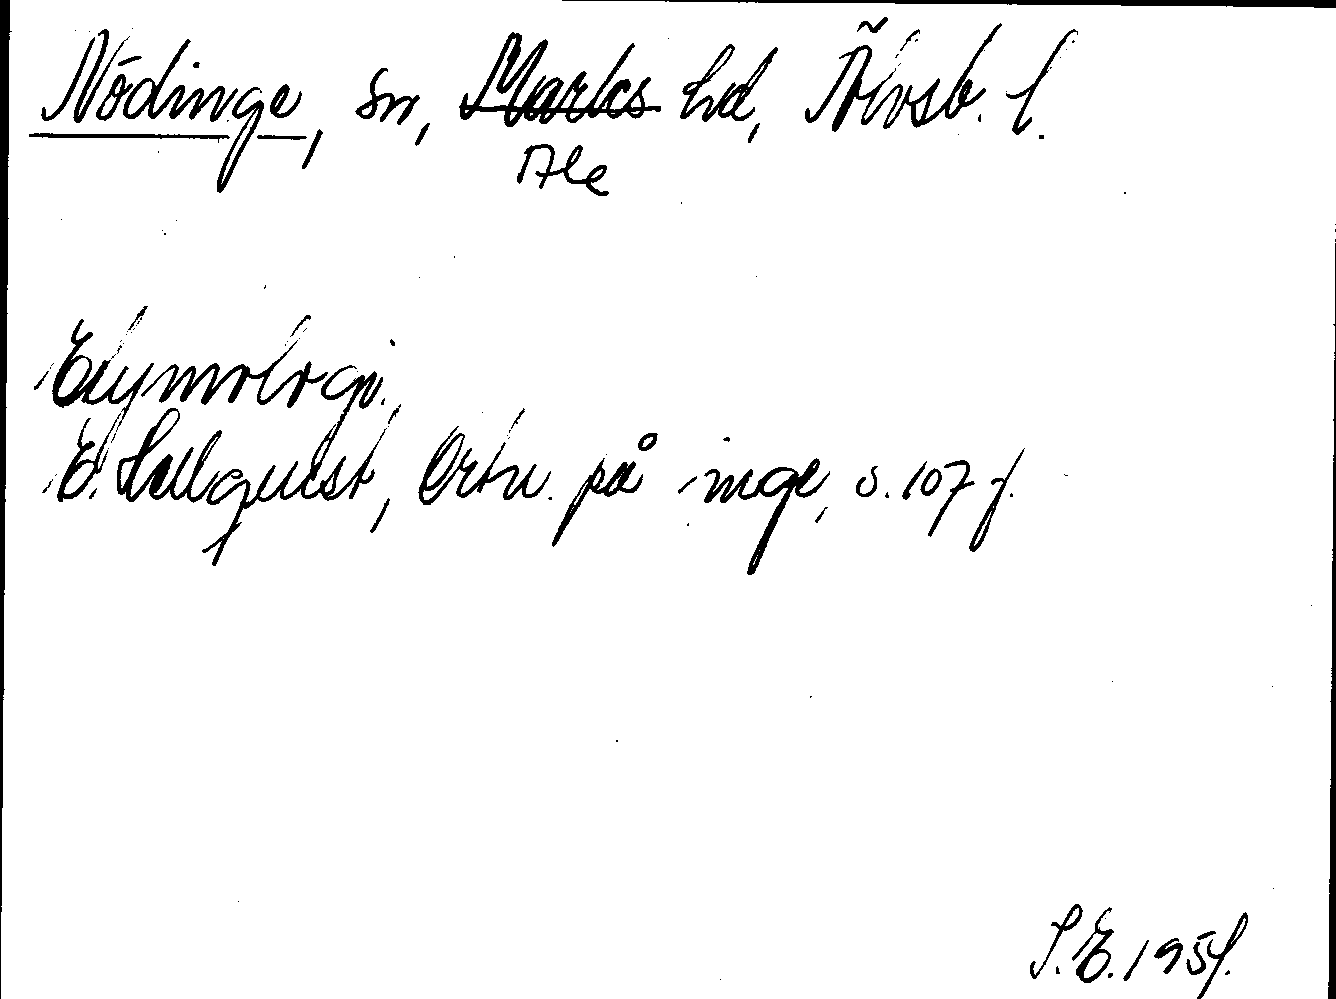 Nödinge, sn, Marks hd, Älvsb. l.
Ale
Etymologi.
E. Hellquist, Ortn. på inge, s. 107 f.
S.E. 1951.